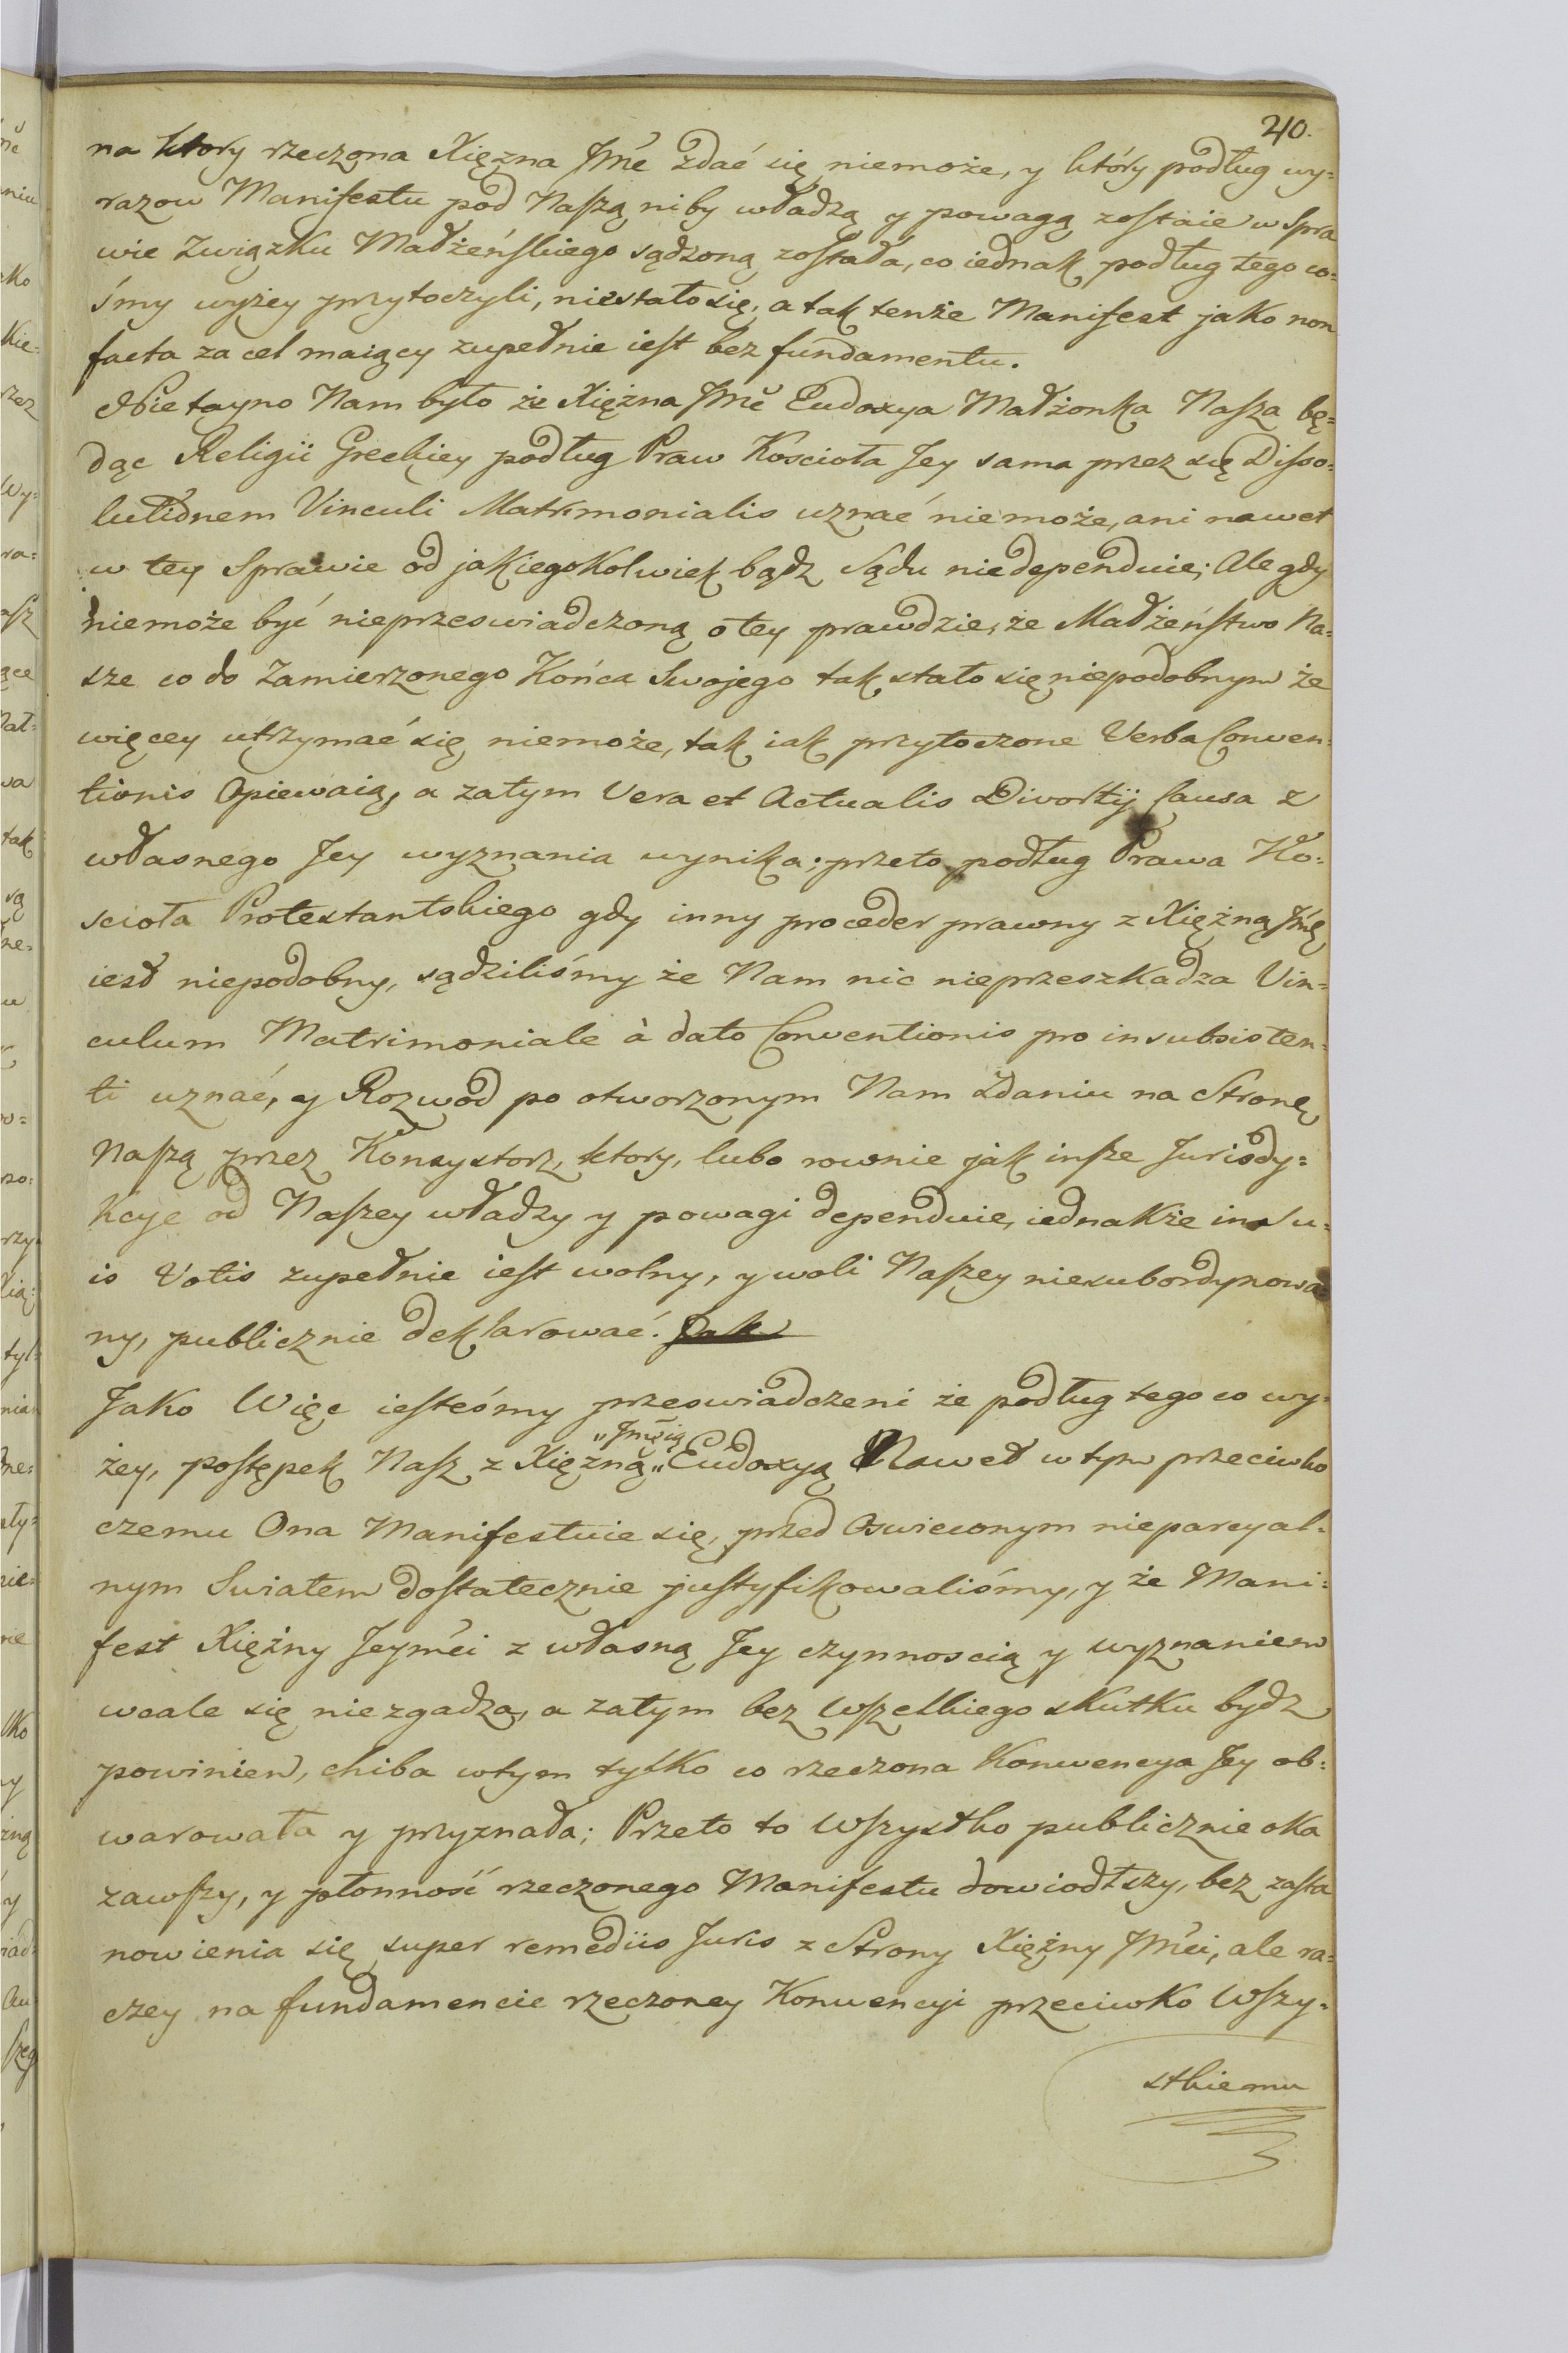 40.
na ktory rzeczona Xięzna Jmć zdać się niemoże, y ktòry podług wy=
razow Manifestu pod Naszą niby władzą y powagą zostaie w Spra
wie Związku Małżeńskiego sądzoną została, co iednak podług tego co=
śmy wyzey przytoczyli, niestało się, a tak tenże Manifest jako non
facta za cel maiący zupełnie iest bez fundamentu.
Nie tayno Nam było że Xiężna Jmć Eudoxya Małżonka Nasza bę=
dąc Religii Greckiey podług Praw Kościoła Jey sama przez się Disso=
lutionem Vinculi Matrimonialis uznać niemoże, ani nawet
w tey Sprawie od jakiegokolwiek bądz Sądu niedependuie; Ale gdy
niemoże być nieprzeswiadczoną o tey prawdzie, że Małżeństwo Na=
sze co do Zamierzonego Końca Swojego tak stało się niepodobnym że
więcey utrzymać się niemoże, tak iak przytoczone Verba Conven=
tionis Opiewaią, a zatym Vera et Actualis Divortij Causa z
własnego Jey wyznania wynika; przeto podług Prawa Ko=
scioła Protestantskiego gdy inny proceder prawny z Xiężną Jmę
iest niepodobny, sądziliśmy że Nam nic nieprzeszkadza Vin=
culum Matrimoniale à dato Conventionis pro insubsisten=
ti uznać, y Rozwod po otworzonym Nam Zdaniu na Stronę
Naszą przez Konsystorz, ktory, lubo rownie jak insze Jurisdy=
kcye od Naszey władzy y powagi dependuie, iednakże in su=
is Votis zupełnie iest wolny, y woli Naszey niesubordynowa
ny, publicznie deklarować. Jak
Jako Więc iesteśmy przeswiadczeni że podług tego co wy=
żey, postępek Nasz z Xiężną „Jmęią„ Eudoxyą Nawet w tym przeciwko
czemu Ona Manifestuie się, przed Oswieconym nieparcyal=
nym Swiatem dostatecznie justyfikowaliśmy, y że Mani=
fest Xiężny Jeymći z własną Jey czynnoscią y wyznaniem
wcale się niezgadza, a zatym bez Wszelkiego skutku bydz
powinien, chiba w tym tylko co rzeczona Konwencya Jey ob=
warowała y przyznała; Przeto to Wszystko publicznie oka
zawszy, y płonność rzeczonego Manifestu dowiodłszy, bez zasta
nowienia się super remediis Juris z Strony Xiężny Jmći, ale ra=
czey na fundamencie rzeczoney Konwencyi przeciwko Wszy=
stkiemu